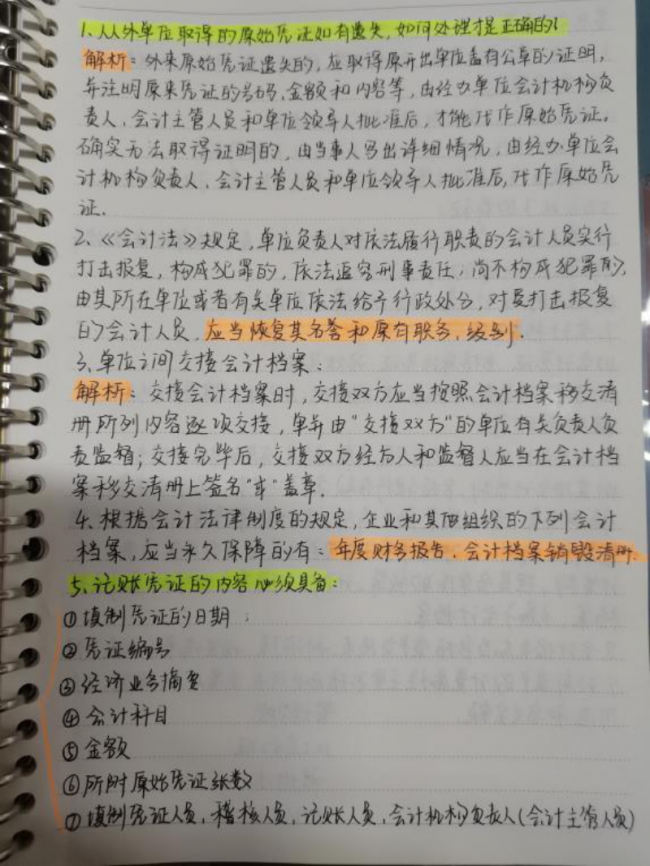 1、从外单位取得的原始凭证如有遗失,如何处理才是正确的:
解析:外来原始凭证遗失的,应取得原开出单位盖有公章的证明,
并注明原来凭证的号码,金额和内容等,由经办单位会计机构负
责人,会计主管人员和单位领导人批准后,才能代作原始凭证。
确实无法取得证明的,由当事人写出详细情况,由经办单位会
计机构负责人、会计主管人员和单位领导人批准后,代作原始凭
证.
2、《会计法》规定,单位负责人对依法履行职责的会计人员实行
打击报复,构成犯罪的,依法追究刑事责任;尚不构成犯罪的,
由其所在单位或者有关单位依法给予行政处分,对受打击报复
的会计人员,应当恢复其名誉和原有职务,级别.
3、单位之间交接会计档案:
解析:交接会计档案时,交接双方应当按照会计档案移交清
册所列内容逐项交接,并由"交接双方"的单位有关负责人负
责监督;交接完毕后,交接双方经办人和监督人应当在会计档
案移交清册上签名"或"盖章.
4.根据会计法律制度的规定,企业和其他组织的下列会计
档案,应当永久保障的有:年度财务报告、会计档案销毁清册.
5、记账凭证的内容必须具备:
①填制凭证的日期;
②凭证编号
③经济业务摘要
④会计科目
⑤金额
⑥所附原始凭证张数
⑦填制凭证人员,稽核人员,记账人员,会计机构负责人(会计主管人员)